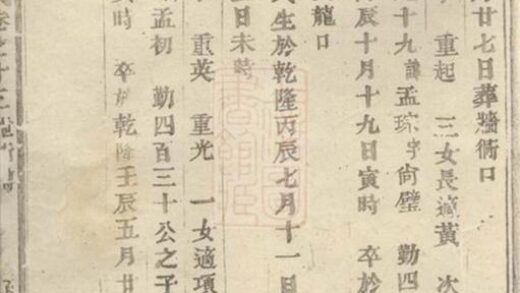 廿七日葬牆衕口
重起 三女長適黃 次
十九 諱孟琮字尚璧 勤四
辰十月十九日寅時 卒於
龍口
氏生於乾隆丙辰七月十一日
日未時
重英 重光 一女適項
孟初 勤四百三十公之子
時 卒於乾隆壬辰五月廿